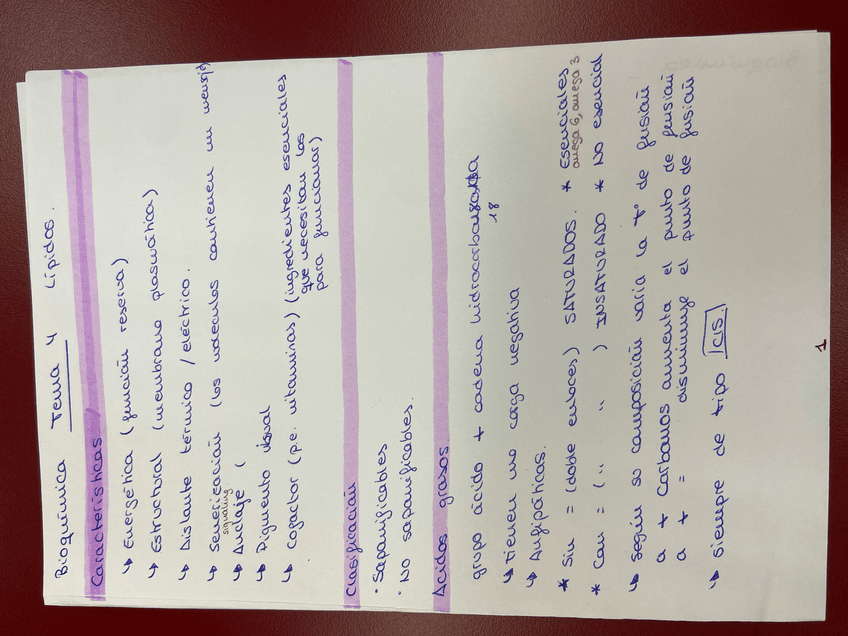 Bioquímica Tema 4 Lípidos.
Características
↳ Energética (función reserva)
↳ Estructural (membrana plasmática)
↳ Aislante térmico / eléctrico.
↳ (las moleculas contienen un mensaje
signaling
↳ Anclaje (
↳ Pigmento visual
↳ Cofactor (p.e. vitaminas) (ingredientes esenciales
que necesitan las
para funcionar)
Clasificación
· Saponificables
· No saponificables.
Acidos grasos.
grupo ácido + cadena hidrocarbonada
18
↳ tienen una carga negativa
↳ Anfipáticas.
* Sin = (doble enlaces) SATURADOS. * Esenciales
omega 6, omega 3
* Con = ( " " ) INSATURADO * No esencial
↳ según su composición varía la tº de fusión
a + Carbonos aumenta el punto de fusión
a + = disminuye el punto de fusión
↳ siempre de tipo CIS.
1